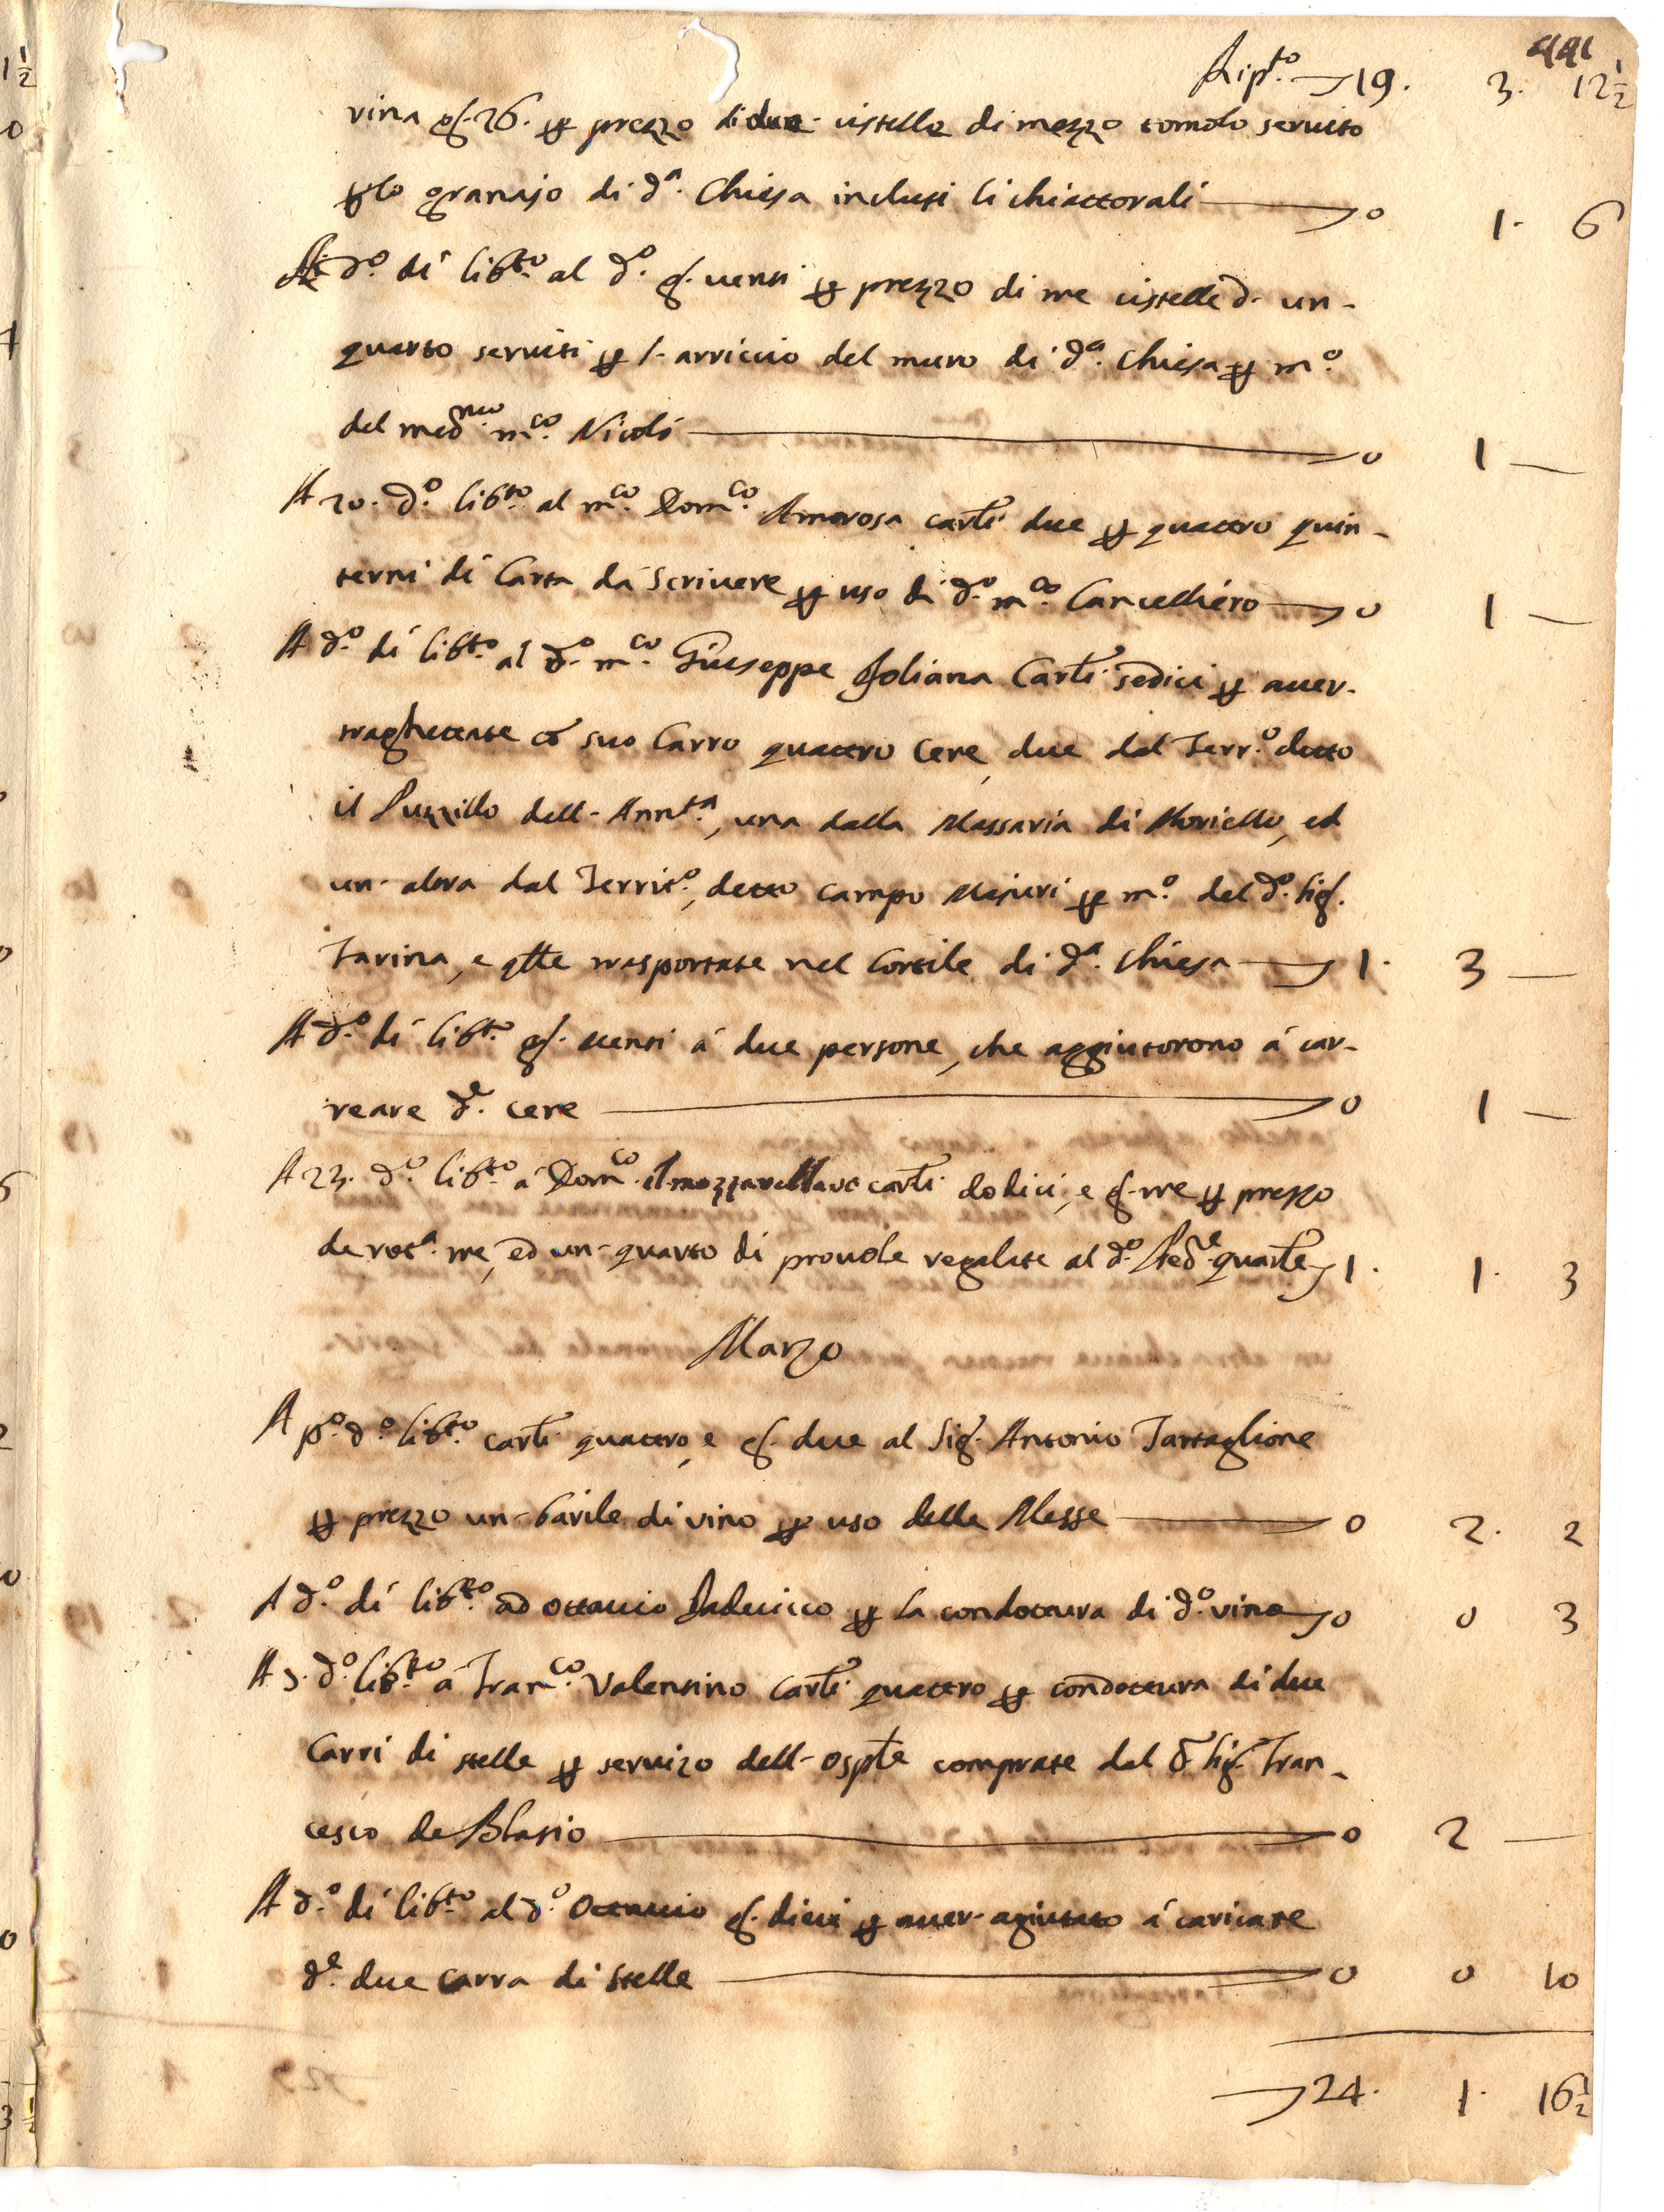 441
Rip.to 19. 3. 12 1/2
vina g. 26. p prezzo di due cistelle di mezzo tomolo servito
p lo granajo di d.a Chiesa inclusi li chiattorali 0 1. 6
A d.o dí lib.to al d.o g. venti p prezzo di tre cistelle d. un-
quarto serviti p l-arriccio del muro di d.a Chiesa p m.o
del med.mo m.co Nicolò 0 1 —
A 20. d.o lib.to al m.co Dom.co Amorosa carl.i due p quattro quin-
terni di Carta dá Scrivere p uso di d.o m.co Cancelliero 0 1 —
A d.o dí lib.to al d.o m.co Giuseppe Joliana Carl.i sedici p aver-
traghettate co suo Carro quattro Cere, due dal Terr.o detto
il Puzzillo dell-Annt.a, una dalla Massaria di Moriello, ed
un-altra dal Territ.o, detto campo Majuri p m.o del d.o Sig.
Farina, e qlle trasportate nel Cortile di d.a Chiesa 1. 3 —
A d.o dí lib.to g. venti á due persone, che aggiutorono á car-
reare d.e cere 0 1 —
A 23. d.o lib.to á Dom.co il mozzarellaro carl.i dodici, e g. tre p prezzo
de rot.a tre, ed un-quarto di provole regalate al d.o Pred.e quar.le 1. 1. 3
Marzo
A p.o d.o lib.to carl.i quattro, e g. due al Sig. Antonio Tartaglione
p prezzo un-barile di vino p uso delle Messe 0 2. 2
A d.o dí lib.to ad Ottavio Paduicco p la condottura di d.o vino 0 0 3
A 3. d.o lib.to á Fran.co Valentino Carl.i quattro p condottura di due
Carri di stelle p servizo dell-osp.le comprate dal d. Sig. Fran-
cesco de Blasio 0 2 —
A d.o dí lib.to al d.o Ottavio g. dieci p aver-agiutato á caricare
d.e due carra di stelle 0 0 10
24. 1. 16 1/2